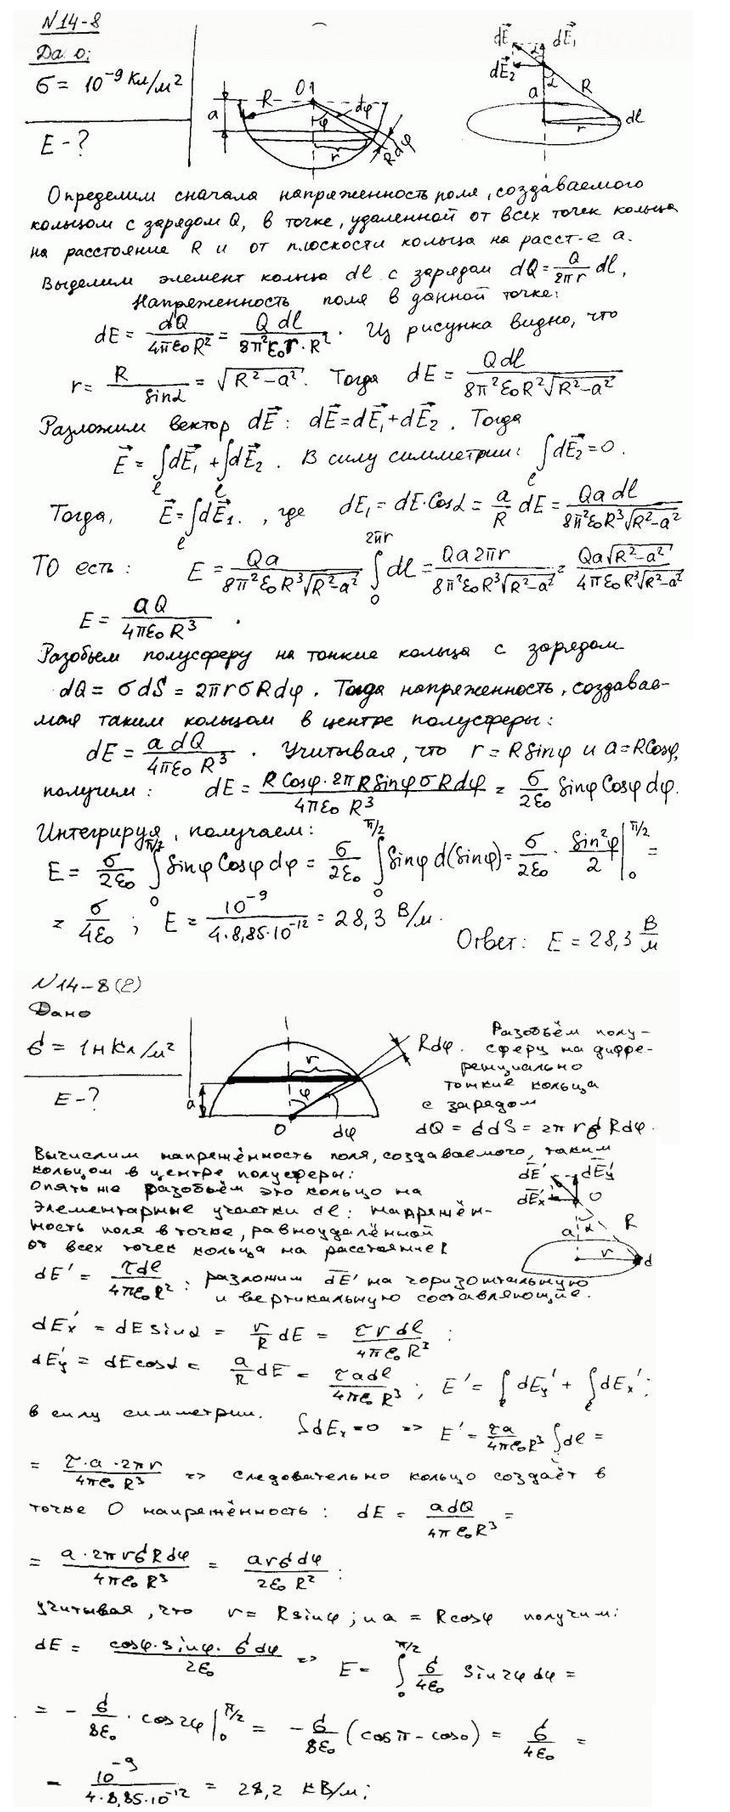 N14-8
Да о;
σ = 10⁻⁹ Кл/м²
E - ?
a R O1 φ dφ r Rdφ
dE⃗ dE⃗₁ dE⃗₂ α a R r dl
Определим сначала напряженность поля, создаваемого
кольцом с зарядом Q, в точке, удаленной от всех точек кольца
на расстояние R и от плоскости кольца на расст-е a.
Выделим элемент кольца dl с зарядом dQ = Q/2πr dl,
Напряженность поля в данной точке:
dE = dQ/4πε₀R² = Q dl/8π²ε₀r·R². Из рисунка видно, что
r = R/sinα = √(R²-a²). Тогда dE = Qdl/8π²ε₀R²√(R²-a²)
Разложим вектор dE⃗: dE⃗ = dE⃗₁ + dE⃗₂. Тогда
E⃗ = ∫_l dE⃗₁ + ∫_l dE⃗₂. В силу симметрии: ∫_l dE⃗₂ = 0.
Тогда, E⃗ = ∫_l dE⃗₁., где dE₁ = dE·Cosα = a/R dE = Qa dl/8π²ε₀R³√(R²-a²)
ТО есть: E = Qa/8π²ε₀R³√(R²-a²) ∫₀^2πr dl = Qa2πr/8π²ε₀R³√(R²-a²) = Qa√(R²-a²)/4πε₀R³√(R²-a²)
E = aQ/4πε₀R³.
Разобьем полусферу на тонкие кольца с зарядом
dQ = σdS = 2πrσRdφ. Тогда напряженность, создавае-
мая таким кольцом в центре полусферы:
dE = a dQ/4πε₀R³. Учитывая, что r = RSinφ и a = RCosφ,
получим: dE = R Cosφ·2πRSinφσRdφ/4πε₀R³ = σ/2ε₀ Sinφ Cosφ dφ.
Интегрируя, получаем:
E = σ/2ε₀ ∫₀^π/2 Sinφ Cosφ dφ = σ/2ε₀ ∫₀^π/2 Sinφ d(Sinφ) = σ/2ε₀ · Sin²φ/2 |₀^π/2 =
= σ/4ε₀; E = 10⁻⁹/4·8,85·10⁻¹² = 28,3 В/м.
Ответ: E = 28,3 В/м
N14-8(2)
Дано
σ = 1нКл/м²
E - ?
a r φ O dφ Rdφ.
Разобьём полу-
сферу на диффе-
ренциально
тонкие кольца
с зарядом
dQ = σdS = 2πrσRdφ.
Вычислим напряжённость поля, создаваемого, таким
кольцом в центре полусферы:
Опять же разобьём это кольцо на
элементарные участки dl: напряжён-
ность поля в точке, равноудалённой
от всех точек кольца на расстояние R
dE' dE'y dE'x O a α R r d
dE' = τdl/4πε₀R²: разложим dE' на горизонтальную
и вертикальную составляющие.
dE'x = dE sinα = r/R dE = τr dl/4πε₀R³:
dE'y = dE cosα = a/R dE = τadl/4πε₀R³; E' = ∫_l dE'y + ∫_l dE'x;
в силу симметрии. ∫dEx = 0 => E' = τa/4πε₀R³ ∫dl =
= τ·a·2πr/4πε₀R³ => следовательно кольцо создаёт в
точке O напряжённость: dE = adQ/4πε₀R³ =
= a·2πrσRdφ/4πε₀R³ = arσdφ/2ε₀R²:
Учитывая, что r = Rsinφ; и a = Rcosφ получим:
dE = cosφ·sinφ·σdφ/2ε₀ => E = ∫₀^π/2 σ/4ε₀ sin2φdφ =
= - σ/8ε₀ · cos2φ |₀^π/2 = - σ/8ε₀ (cosπ - cos0) = σ/4ε₀ =
= 10⁻⁹/4·8,85·10⁻¹² = 28,2 кВ/м;